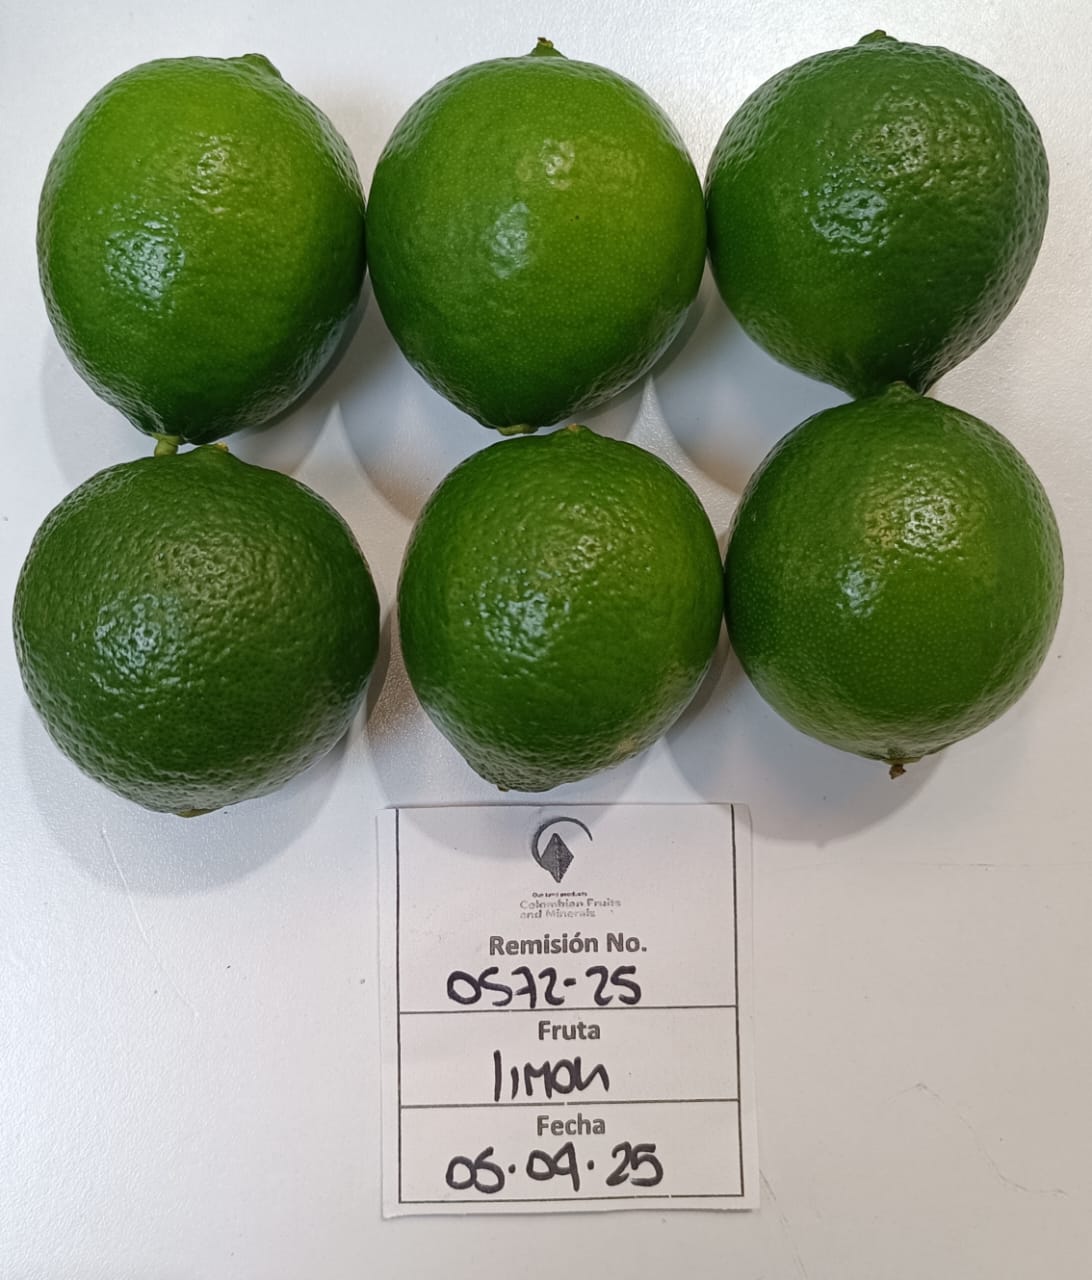 Our land products
Colombian Fruits
and Minerals
Remisión No.
0572-25
Fruta
limon
Fecha
05.09.25